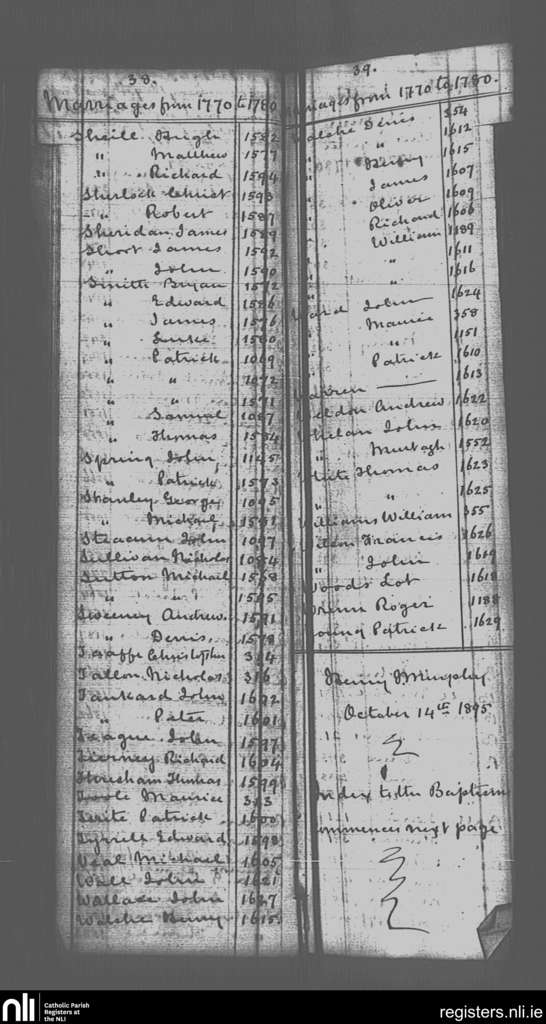 38.
Marriages from 1770 to 1780
Sheill Hugh 1592
" Matthew 1577
" " Richard 1594
Sherlock Christ 1593
" Robert 1587
Sheridan James 1589
Short James 1592
" John 1590
Smith Bryan 1572
" Edward 1586
" James 1576
" Luke
" Patrick 1069
" " 1072
" " 1571
" Samuel 1087
" Thomas 1584
Spring John 1145
" Patrick 1573
Stanley George 1095
" Michael 1591
Steacum John 1097
Sullivan Nicholas 1084
Sutton Michael
" "
Sweeney Andrew. 1591
" Dennis 1578
Taaffe Christopher 314
Tallon Nicholas 316
Tankard John 1602
" Peter 1601
Teague John 1597
Tierney Richard 1604
Thomas 1599
Toole Maurice 313
Patrick 1600
Tyrrell Edward 1598
Veal Michael 1605
Wall John 1621
Wallace John 1627
Walshe Henry 1615
39.
Marriages from 1770 to 1780.
Walshe Denis 354
" " 1612
" Henry 1615
" James 1607
" Oliver 1609
" Richard 1606
" William 1189
" " 1611
" " 1616
Ward John 1624
" Maurice 358
" " 1151
" Patrick 1610
Warren — 1613
Weldon Andrew 1622
Whelan John 1620
" Murtagh 1552
White Thomas 1623
" " 1625
Williams William 355
Wilson Francis 1626
" John 1619
Woods Lot 1618
Roger 1188
Young Patrick 1629
Henry Murphy
October 14th 1895
Index to the Baptisms
commences next page
nli Catholic Parish
Registers at
the NLI
registers.nli.ie